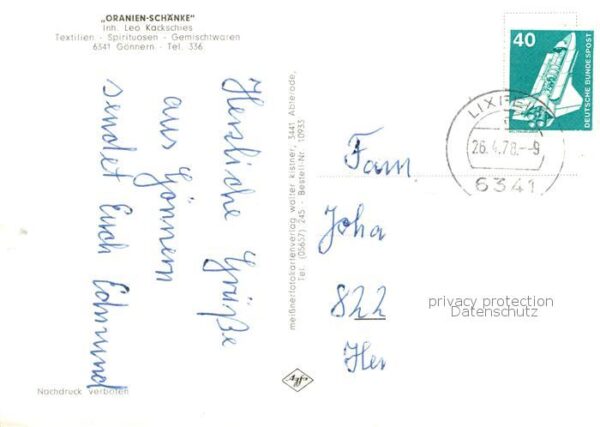 „ORANIEN-SCHÄNKE"
Inh. Leo Kackschies
Textilien - Spirituosen - Gemischtwaren
6341 Gönnern - Tel. 336
Herzliche Grüße
aus Gönnern
sendet Euch Edmund
Nachdruck verboten
meißner fotokartenverlag walter kistner, 3441 Abterode,
Tel. (05657) 245 - Bestell-Nr. 10935
40
DEUTSCHE BUNDESPOST
26.4.78.-9
6341
Fam.
Joha
822
Her
privacy protection
Datenschutz